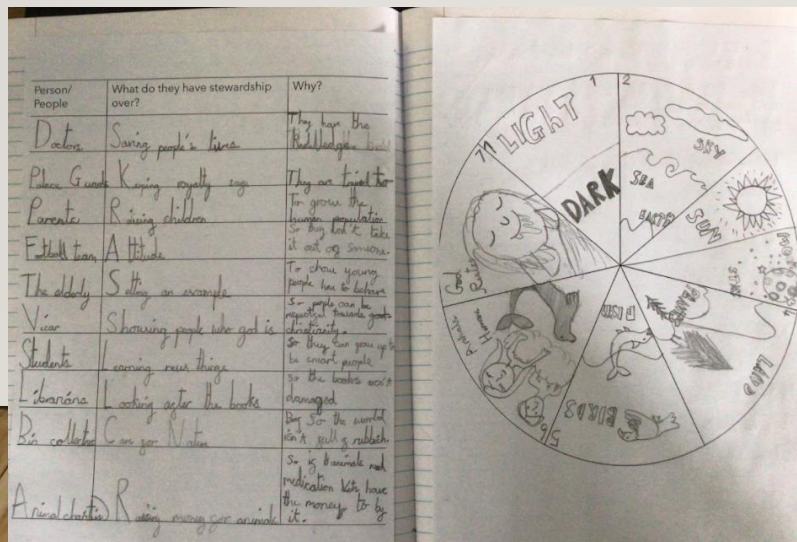 Person/
People
What do they have stewardship
over?
Why?
Doctors
Saving people's lives
They have the
Palace Guards
Keeping royalty
They are
Parents
Raising children
To grow the
human population
Football team
Attitude
So they don't take
it out on someone.
The elderly
Setting an example
To show young
people how to behave
Vicar
Showing people who god is
So people can be
respectful towards
christianity.
Students
Learning new things
So they can grow up to
be smart people
Librarians
Looking after the books
So the books
damaged
Bin collectors
Care for
So the world
isn't full of rubbish.
Animal charities
Raising money for animals
So if animals need
medication Vets have
the money to
it.
1
LIGHT
DARK
2
SKY
SEA
EARTH
SUN
4
LAND
PLANTS
FISH
BIRDS
5
6
Humans
7
God